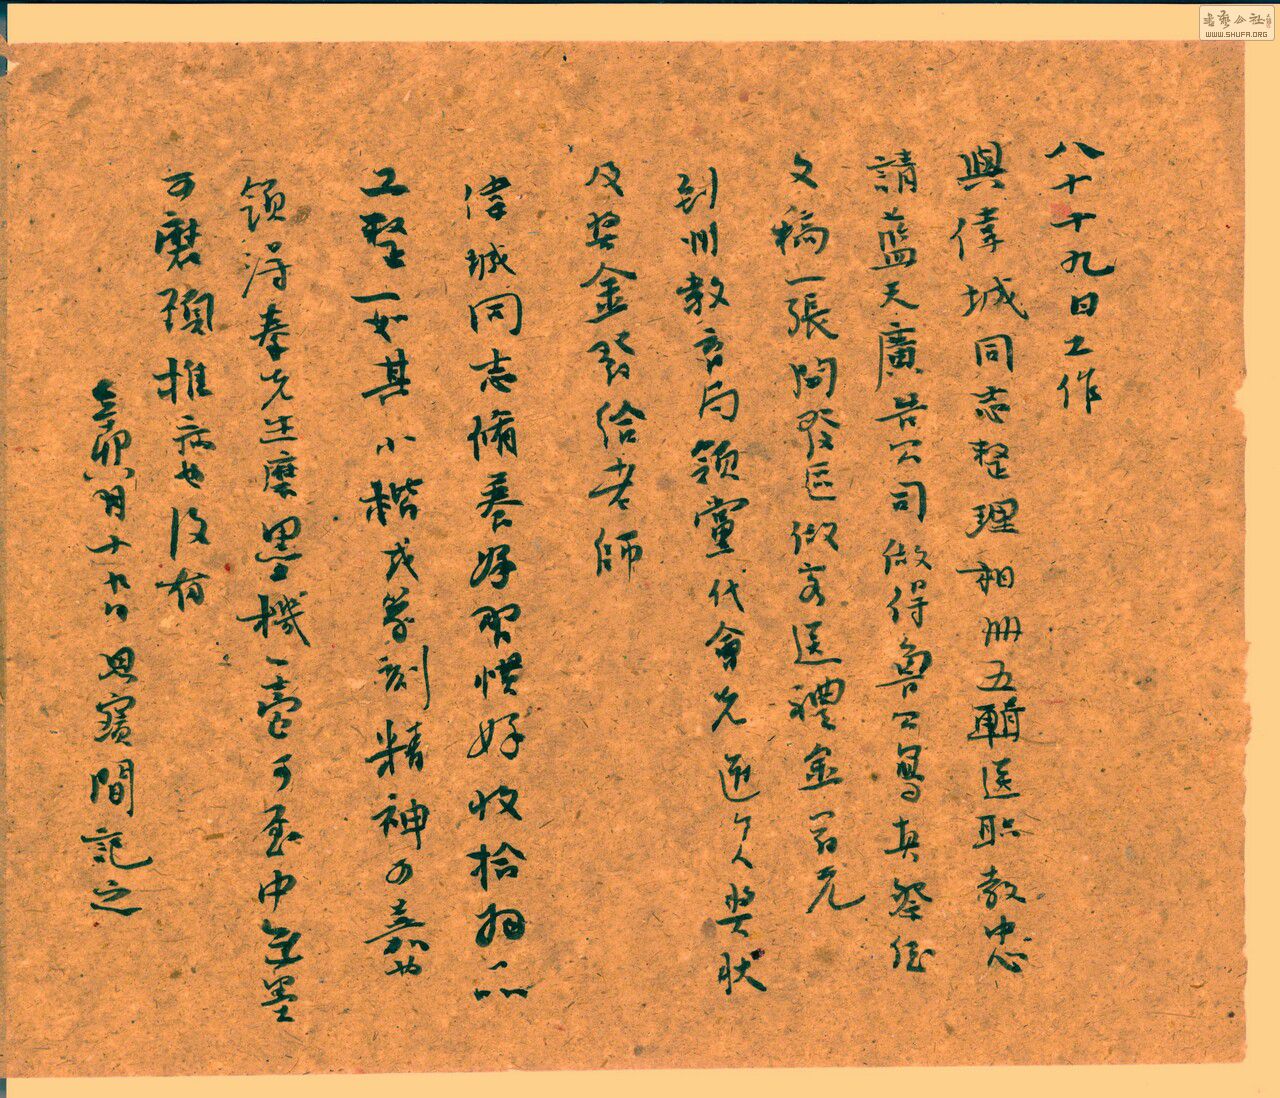 八十十九日工作
與偉城同志整理相冊五輯送职教中心
請蓝天廣告公司做得魯公寫真祭侄
文稿一張開發區做客送禮金百元
到州教育局領黨代會先進个人奖状
及奖金發给老師
偉城同志脩養好習慣好收拾物品
工整一如其小楷或篆刻精神可嘉也
領得秦先生磨墨機一壹可至中無墨
可磨須推病也没有
辛卯八月十九日 思賓間記之
書藝公社
WWW.SHUFA.ORG